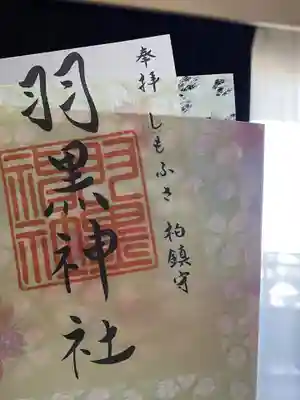 奉拝
しもふさ 柏鎮守
羽黒神社